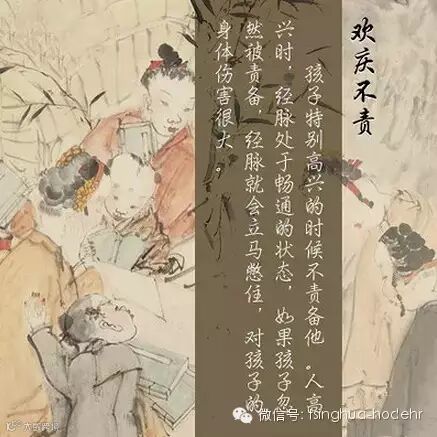 欢庆不责
孩子特别高兴的时候不责备他。人高
兴时，经脉处于畅通的状态，如果孩子忽
然被责备，经脉就会立马憋住，对孩子的
身体伤害很大。
微信号: tsinghua-hodehr